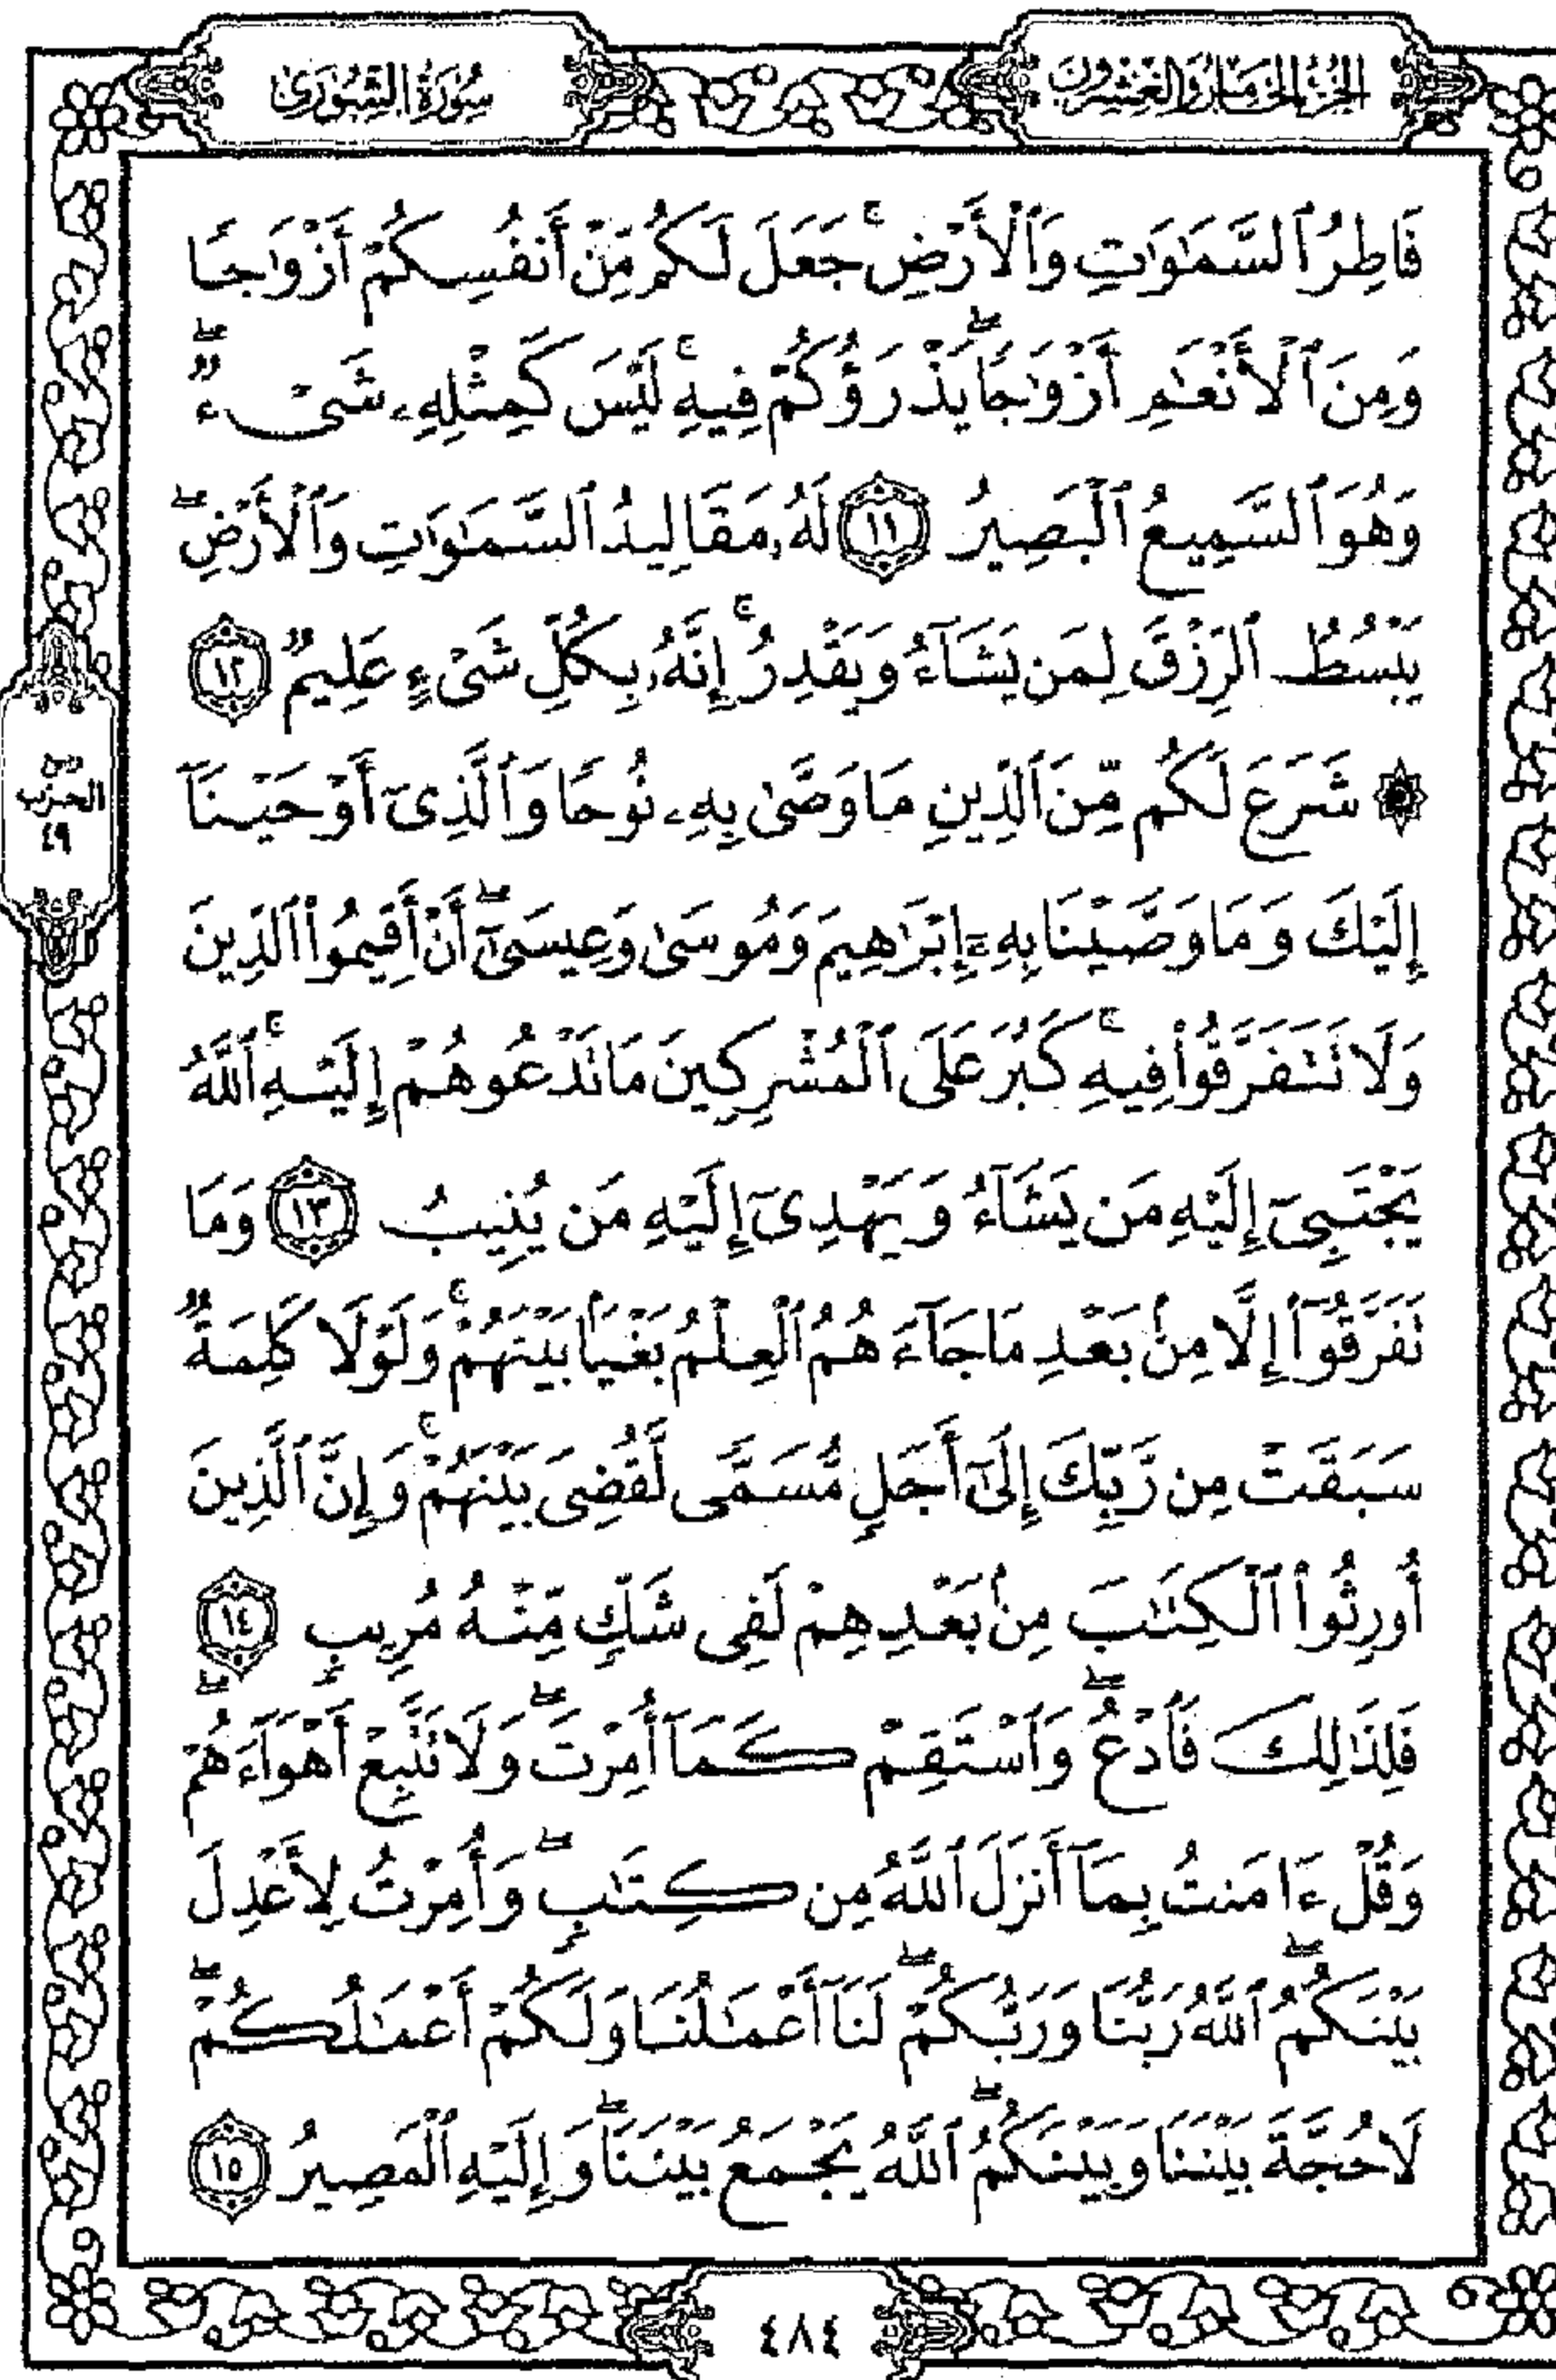 الجزء الخامس والعشرون
سورة الشورى
فَاطِرُ ٱلسَّمَٰوَٰتِ وَٱلْأَرْضِ ۚ جَعَلَ لَكُم مِّنْ أَنفُسِكُمْ أَزْوَٰجًا
وَمِنَ ٱلْأَنْعَٰمِ أَزْوَٰجًا ۖ يَذْرَؤُكُمْ فِيهِ ۚ لَيْسَ كَمِثْلِهِۦ شَىْءٌ ۖ
وَهُوَ ٱلسَّمِيعُ ٱلْبَصِيرُ ١١ لَهُۥ مَقَالِيدُ ٱلسَّمَٰوَٰتِ وَٱلْأَرْضِ ۖ
يَبْسُطُ ٱلرِّزْقَ لِمَن يَشَآءُ وَيَقْدِرُ ۚ إِنَّهُۥ بِكُلِّ شَىْءٍ عَلِيمٌ ١٢
۞ شَرَعَ لَكُم مِّنَ ٱلدِّينِ مَا وَصَّىٰ بِهِۦ نُوحًا وَٱلَّذِىٓ أَوْحَيْنَآ
إِلَيْكَ وَمَا وَصَّيْنَا بِهِۦٓ إِبْرَٰهِيمَ وَمُوسَىٰ وَعِيسَىٰٓ ۖ أَنْ أَقِيمُوا۟ ٱلدِّينَ
وَلَا تَتَفَرَّقُوا۟ فِيهِ ۚ كَبُرَ عَلَى ٱلْمُشْرِكِينَ مَا تَدْعُوهُمْ إِلَيْهِ ۚ ٱللَّهُ
يَجْتَبِىٓ إِلَيْهِ مَن يَشَآءُ وَيَهْدِىٓ إِلَيْهِ مَن يُنِيبُ ١٣ وَمَا
تَفَرَّقُوٓا۟ إِلَّا مِنۢ بَعْدِ مَا جَآءَهُمُ ٱلْعِلْمُ بَغْيًۢا بَيْنَهُمْ ۚ وَلَوْلَا كَلِمَةٌ
سَبَقَتْ مِن رَّبِّكَ إِلَىٰٓ أَجَلٍ مُّسَمًّى لَّقُضِىَ بَيْنَهُمْ ۚ وَإِنَّ ٱلَّذِينَ
أُورِثُوا۟ ٱلْكِتَٰبَ مِنۢ بَعْدِهِمْ لَفِى شَكٍّ مِّنْهُ مُرِيبٍ ١٤
فَلِذَٰلِكَ فَٱدْعُ ۖ وَٱسْتَقِمْ كَمَآ أُمِرْتَ ۖ وَلَا تَتَّبِعْ أَهْوَآءَهُمْ ۖ
وَقُلْ ءَامَنتُ بِمَآ أَنزَلَ ٱللَّهُ مِن كِتَٰبٍ ۖ وَأُمِرْتُ لِأَعْدِلَ
بَيْنَكُمُ ۖ ٱللَّهُ رَبُّنَا وَرَبُّكُمْ ۖ لَنَآ أَعْمَٰلُنَا وَلَكُمْ أَعْمَٰلُكُمْ ۖ
لَا حُجَّةَ بَيْنَنَا وَبَيْنَكُمُ ۖ ٱللَّهُ يَجْمَعُ بَيْنَنَا ۖ وَإِلَيْهِ ٱلْمَصِيرُ ١٥
الحزب
٤٩
٤٨٤